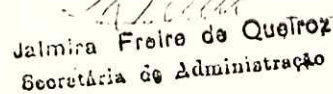 Jalmira Freire de Queiroz
Secretária de Administração